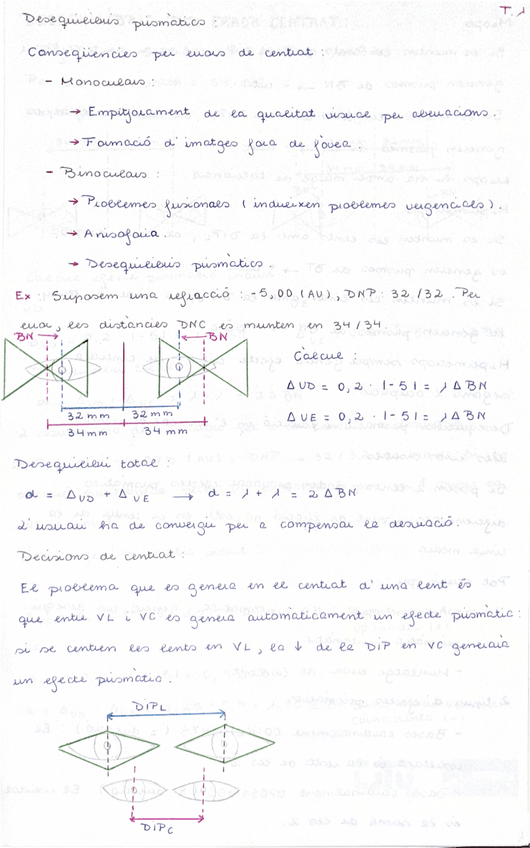 T.1
Desequilibris prismàtics :
Conseqüències per errors de centrat :
- Monoculars :
→ Empitjorament de la qualitat visual per aberracions.
→ Formació d'imatges fora de fòvea.
- Binoculars :
→ Problemes fusionals ( indueixen problemes vergencials ).
→ Anisoforia.
→ Desequilibris prismàtics.
Ex : Suposem una refracció : -5,00 (AU), DNP : 32 /32. Per
error, les distàncies DNC es munten en 34/34.
BN BN
Càlcul :
ΔUD = 0,2 · |-5| = 1 Δ BN
ΔUE = 0,2 · |-5| = 1 Δ BN
32 mm 32 mm
34 mm 34 mm
Desequilibri total :
d = ΔUD + ΔUE → d = 1 + 1 = 2 Δ BN
L'usuari ha de convergir per a compensar la desviació.
Decisions de centrat :
El problema que es genera en el centrat d'una lent és
que entre VL i VC es genera automàticament un efecte prismàtic :
si se centren les lents en VL, la ↓ de la DIP en VC generaria
un efecte prismàtic.
DIPL
DIPC